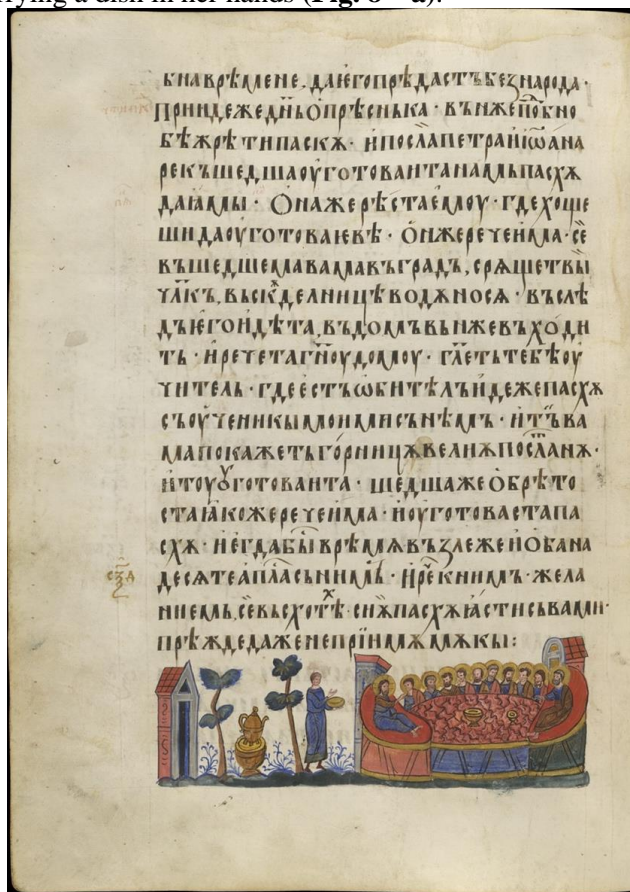 rying a dish in her hands (Fig. 8 – a).
бнаврѣмене. даегопрѣдастъбезнарода·
Прїидежеднь҃опрѣснька· вънжепоⷣбно
бѣжрѣтипасхѫ· ꙵпослапетраꙵїѡана
рекъшедшаоуготовантанамьпасхѫ
даꙗмы· Онажерѣстаемоу·гдехоще
шидаоуготоваевѣ· ѻнжереченма·се
въшедшемавамавъградъ, срѧщетвы
чл҃къ, въскѫделницѣводѫносѧ· въслѣ
дъегоꙵдѣта, вьдомъвьнжевъходи
ть· ꙵречетаг҃ноудомоу· гл҃етьтебѣоу
читель· гдеестъѡбитѣлъꙵдежепасхѫ
съоученикымоꙵмисънѣмъ· ꙵтъва
мапокажетьгорницѫвелиѫпослан҃ѫ·
ꙵтоуоуготованта· шедшажеобрѣто
стаꙗкожереченма· ꙵоуготовастапа
схѫ· ꙵегдабыврѣмѧвъзлежеꙵобана
десѧтеап҃ласънимь· ꙵрекнимъ· жела
ниемь, севьсхотѣⷯ· сиѫпасхѫꙗстисьвами·
прѣждедаженепрїимѫмѫкы:
сѯ҃д